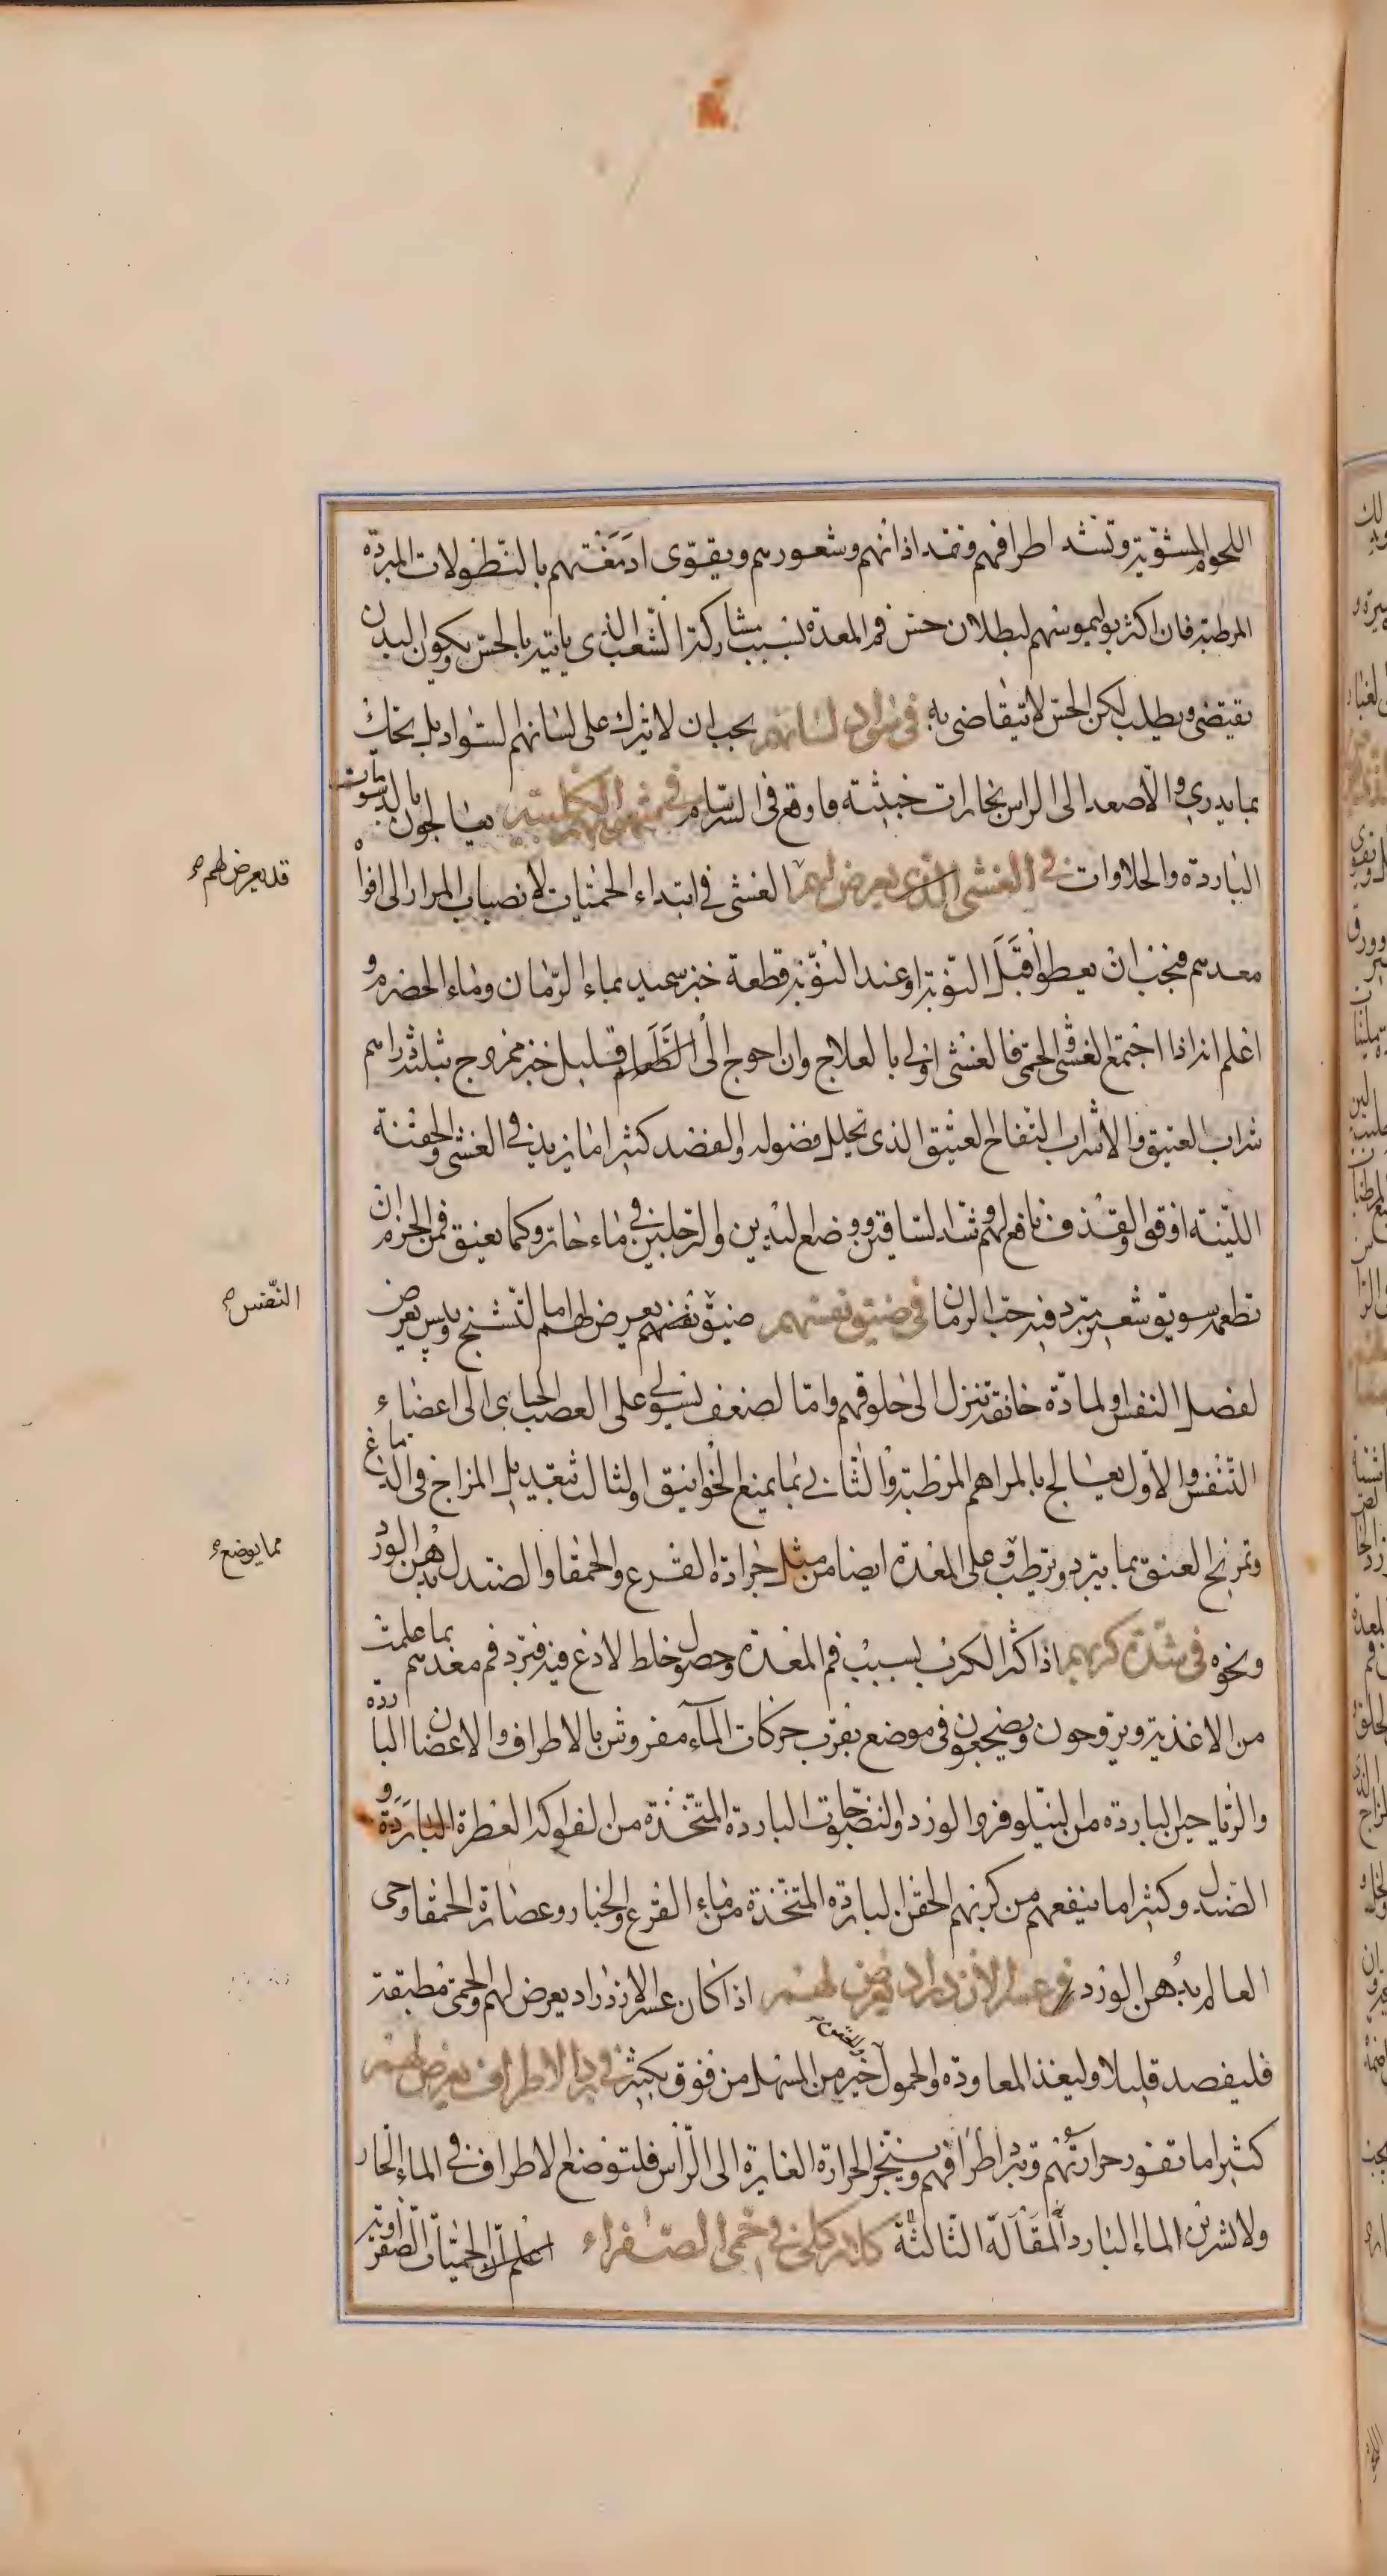 اللحوم المشوية وتشد اطرافهم وتمد اذانهم وشعورهم ويقوى ادمغتهم بالنطولات المبردة
المرطبة فان اكثر بوليموسهم لبطلان حس فم المعدة بسبب مشاركة الشعب الذى ياتيه بالحس ويكون البدن
يقتضى ويطلب لكن الحس لا يتقاضى به في سواد لسانهم يجب ان لا يترك على لسانهم السواد بل يحك
بما يدرى والا صعد الى الراس بخارات خبيثة فاوقع فى السرسام في شهوتهم الكلبية يعالجون بالدسومات
الباردة والحلاوات في الغشى الذى يعرض لهم الغشى فى ابتداء الحميات لانصباب المرار الى افواه
قد يعرض لهم
معدهم فيجب ان يعطوا قبل النوبة او عند النوبة قطعة خبز سميد بماء الرمان وماء الحصرم و
اعلم انه اذا اجتمع الغشى والحمى فالغشى اولى بالعلاج وان احوج الى الطعام قليل خبز ممزوج بثلثة دراهم
شراب العتيق والا شراب التفاح العتيق الذى تحلل فضوله والفصد كثيرا ما يزيد في الغشى والحقنة
اللينة اوفق والقذف نافع لهم وشد الساقين ووضع اليدين والرجلين في ماء حار وكما يفيق فمن الحزم ان
تطعمه سويق شعير مبرد فيه حب الرمان في ضيق نفسهم ضيق نفسهم يعرض لهم اما لتشنج ويبس يعرض
لعضل النفس او لمادة خانقة تنزل الى حلوقهم واما لضعف يستولى على العصب الجاى الى اعضاء
النفس
التنفس والاول يعالج بالمراهم المرطبة والثانى بما يمنع الخوانيق والثالث بتعديل المزاج فى الدماغ
وتمريخ العنق بما يبرد ويرطب وعلى المعدة ايضا من مثل جرادة القرع والحمقا والصندل بدهن الورد
مما يوضع
ونحوه في شدة كربهم اذا كثر الكرب بسبب فم المعدة وحصول خلط لاذع فيه فبرد فم معدهم بما علمت
من الاغذية ويروحون ويضجعون فى موضع بقرب حركات الماء مفروش بالاطراف والاغصان الباردة
والرياحين الباردة من النيلوفر والورد والنضوحات الباردة المتخذة من الفواكه العطرة الباردة و
الصندل وكثيرا ما ينفعهم من كربهم الحقن الباردة المتخذة من ماء القرع والخيار وعصارة الحمقا وحى
العالم بدهن الورد في عسر الازدراد يعرض لهم اذا كان عسر الازدراد يعرض لهم والحمى مطبقة
فليفصد قليلا وليغذ المعاودة والحمول خير من المسهل من فوق بكثير في برد الاطراف يعرض لهم
كثيرا ما تغور حرارتهم وتبرد اطرافهم ويتبخر الحرارة الغايرة الى الراس فلتوضع الاطراف في الماء الحار
ولا يشربن الماء البارد المقالة الثالثة كلام كلى في حمى الصفراء اعلم ان الحميات الصفراوية